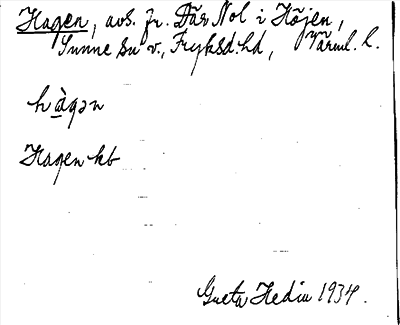 Hagen, avs. fr. Där Nol i Höjen,
Sunne sn v., Fryksd. hd, Värml. l.
hàgən
Hagen kb
Greta Hedin 1934.